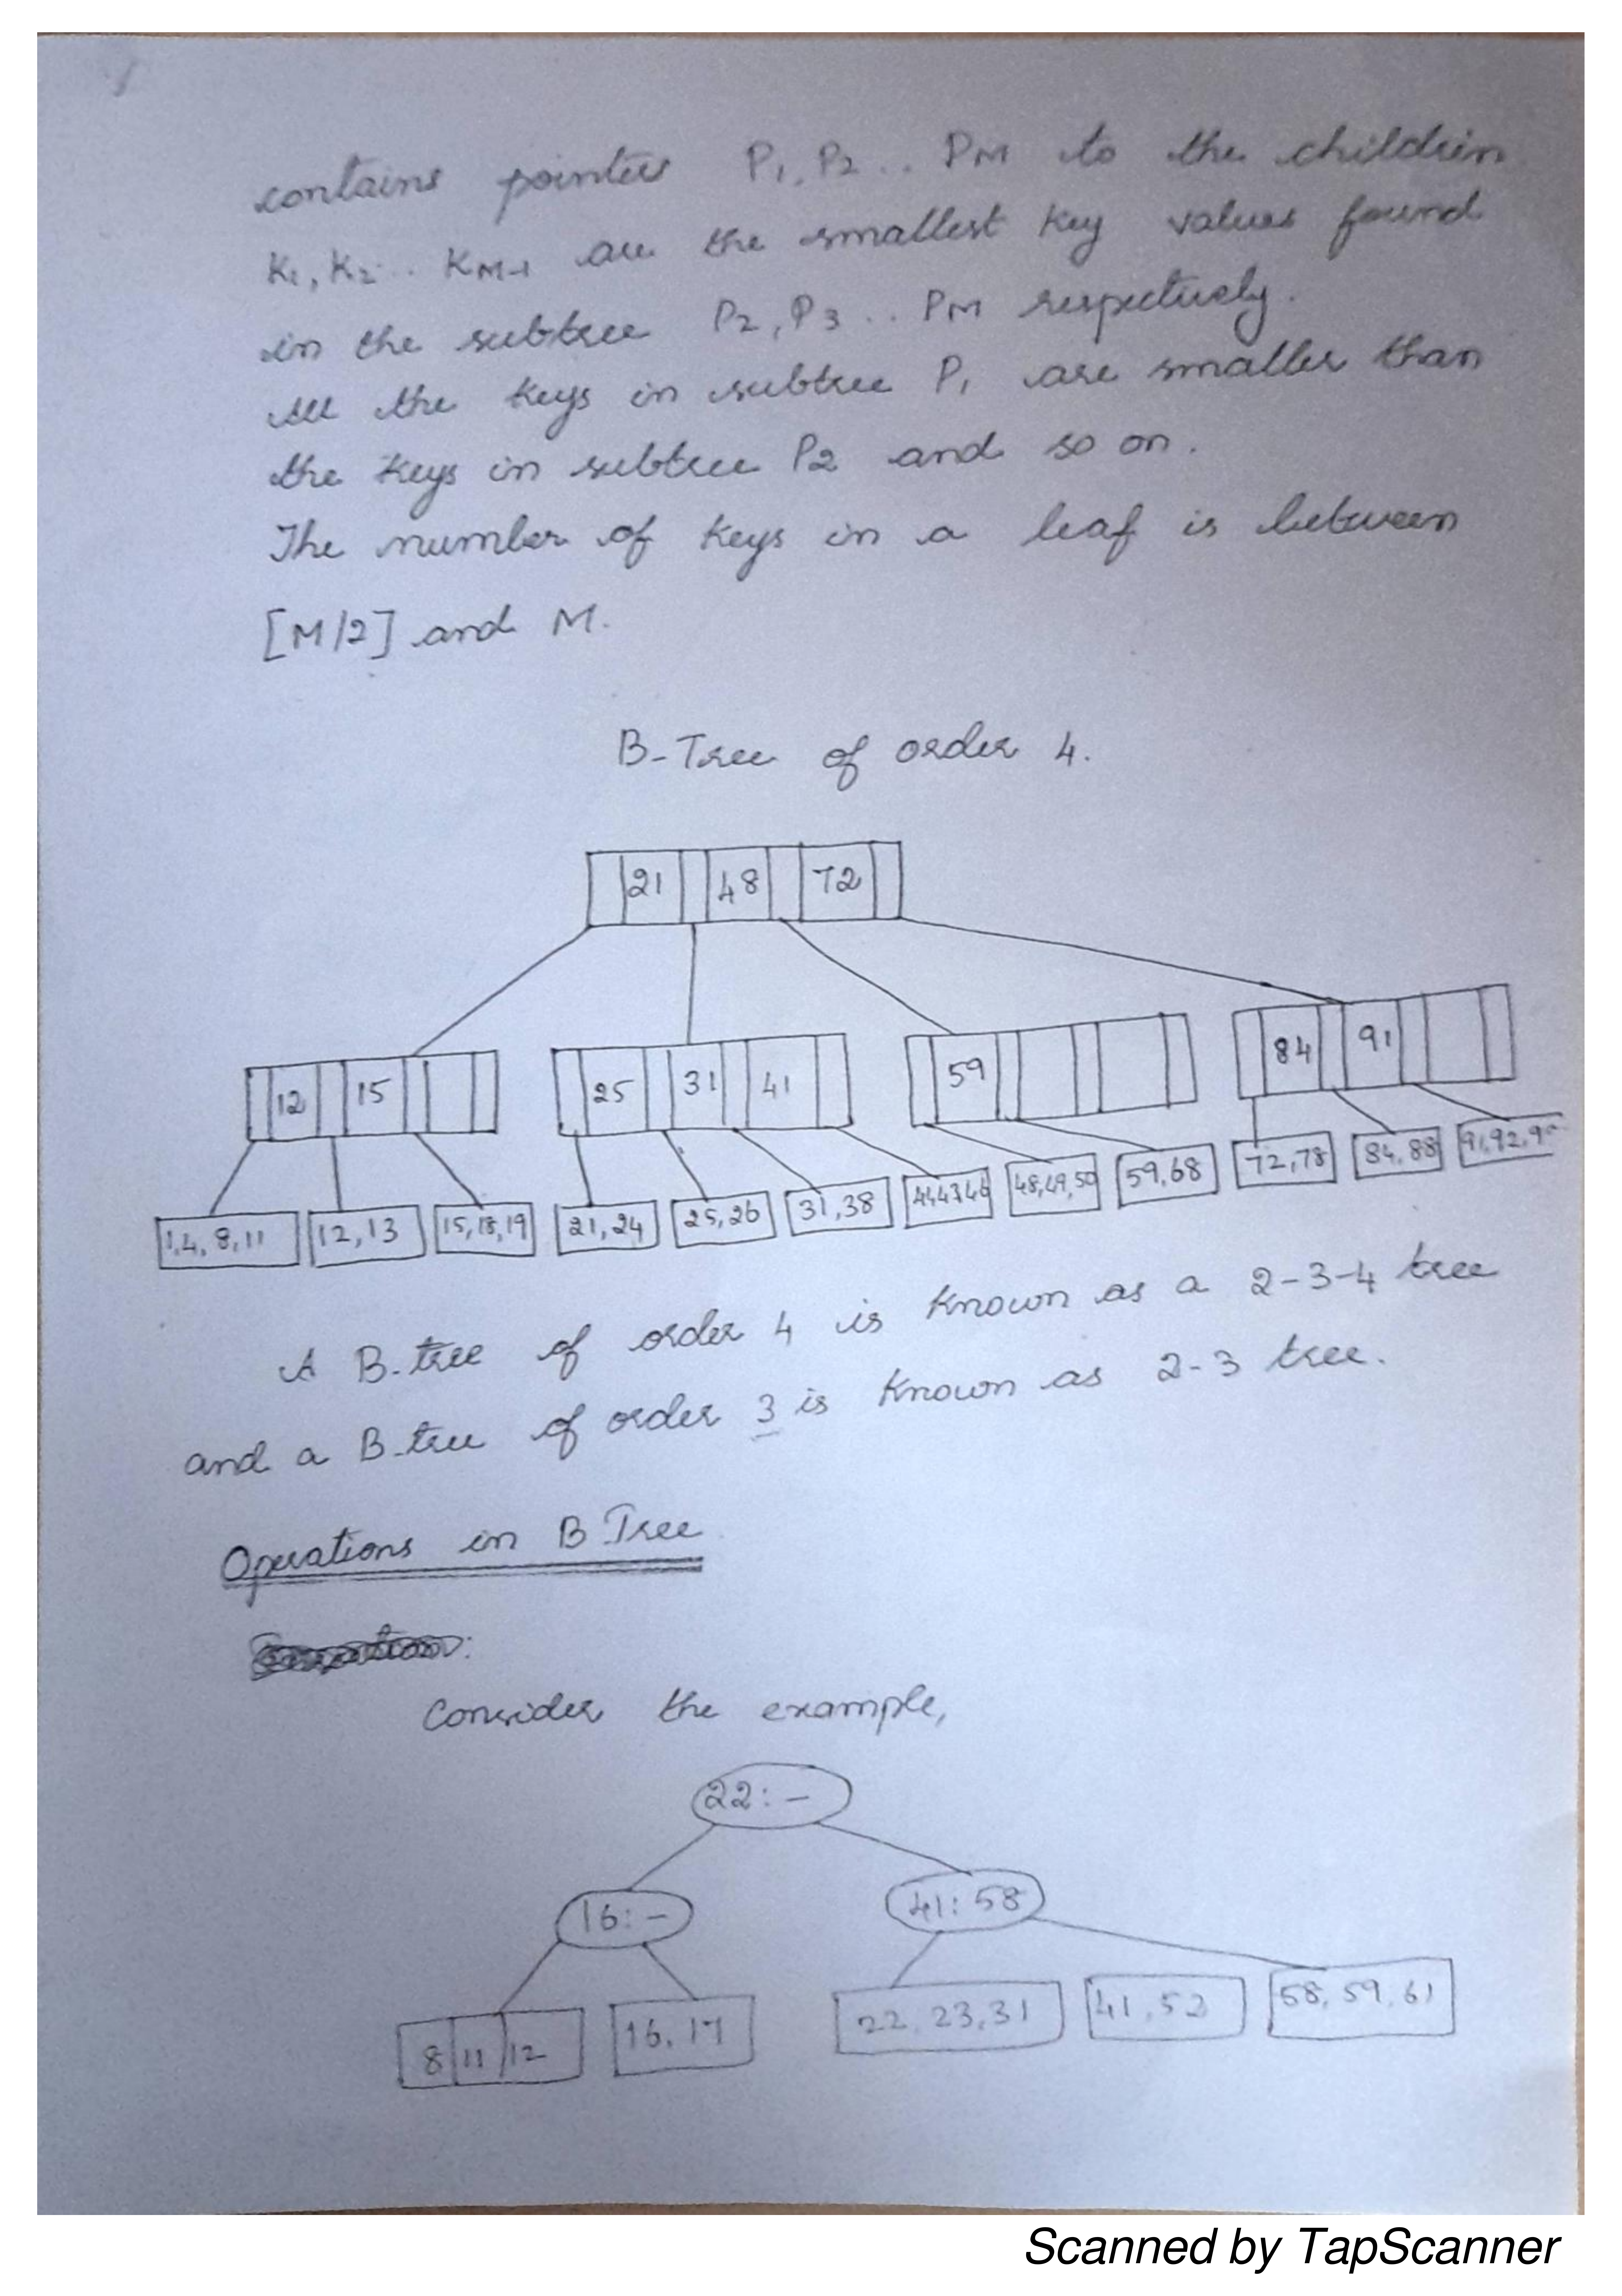 contains pointers P1, P2 .. PM to the children
K1, K2 .. KM-1 are the smallest key values found
in the subtree P2, P3 .. PM respectively.
All the keys in subtree P1 are smaller than
the keys in subtree P2 and so on.
The number of keys in a leaf is between
[M/2] and M.
B-Tree of order 4.
21 48 72
12 15 25 31 41 59 84 91
1,4,8,11 12,13 15,18,19 21,24 25,26 31,38 48,49,50 59,68 72,78 84,88 91,92,
A B-tree of order 4 is known as a 2-3-4 tree
and a B-tree of order 3 is known as 2-3 tree.
Operations in B Tree
Consider the example,
22:-
16:- 41:58
8 11 12 16, 17 22, 23, 31 41, 52 58, 59, 61
Scanned by TapScanner